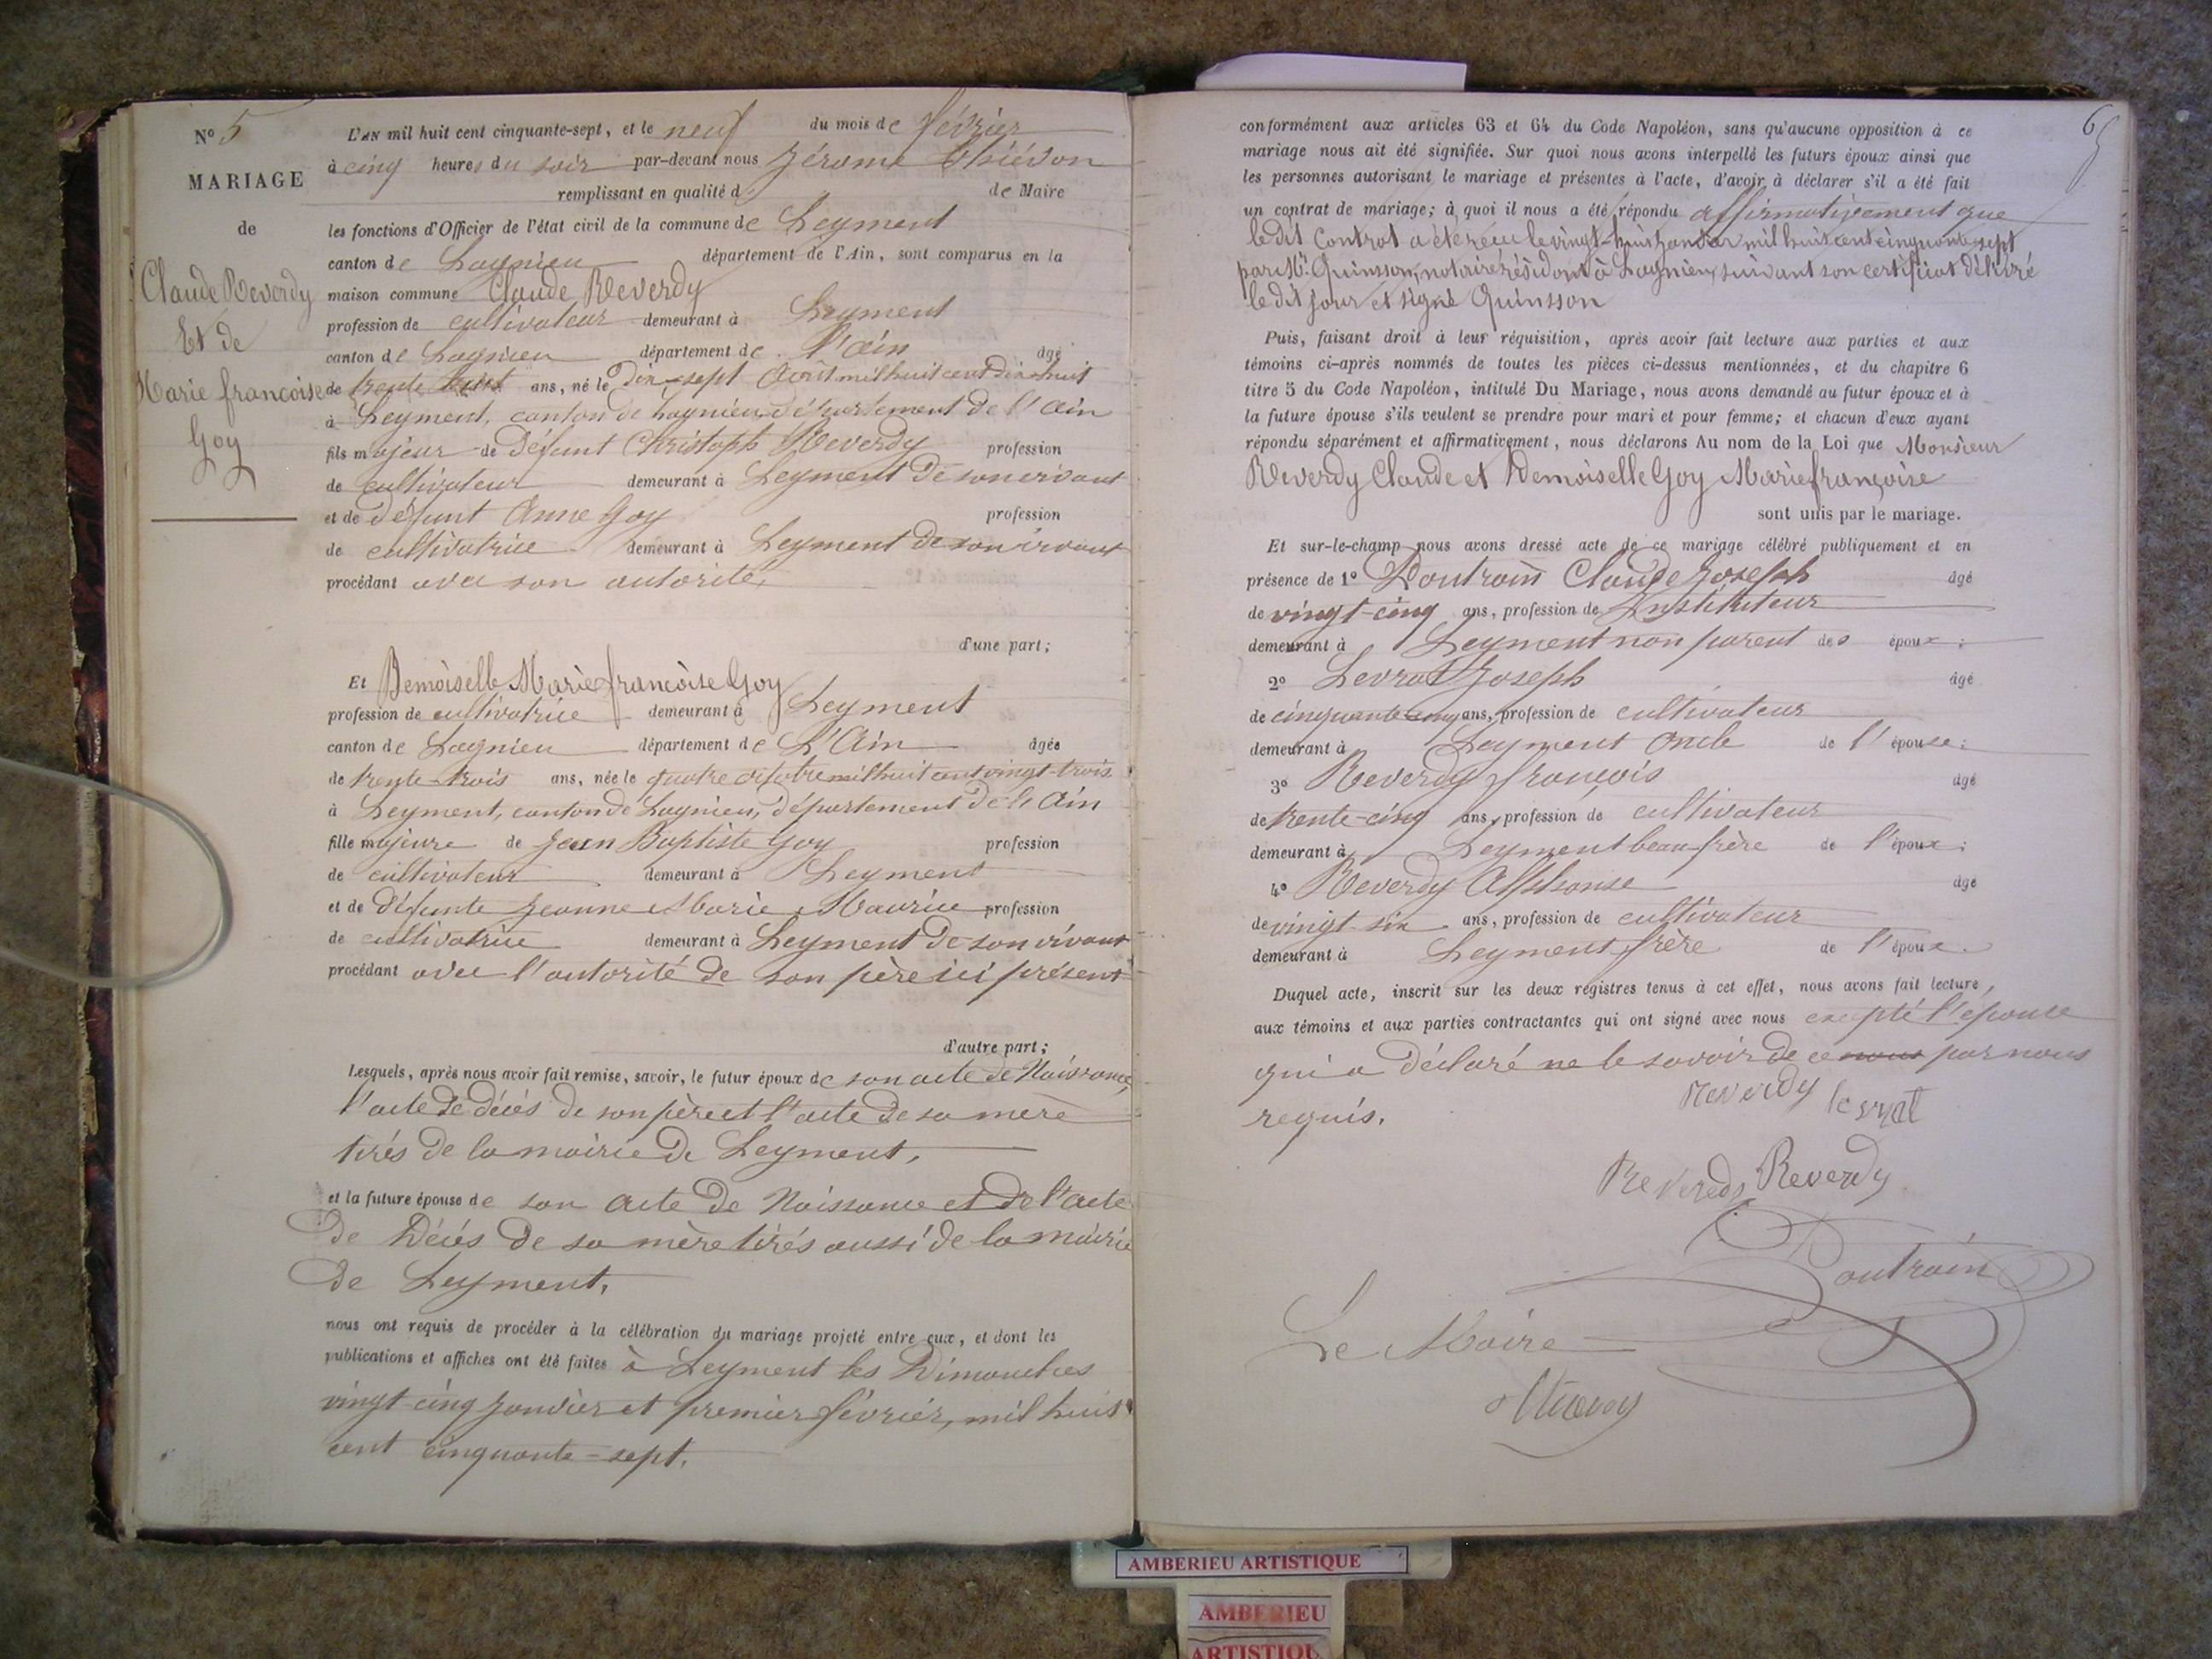 N° 5
MARIAGE
de
Claude Reverdy
Et de
Marie françoise
Goy
L'AN mil huit cent cinquante-sept, et le neuf du mois de février
à cinq heures du soir par-devant nous Jérome Thiévon
remplissant en qualité d de Maire
les fonctions d'Officier de l'état civil de la commune de Leyment
canton de Lagnieu département de l'Ain, sont comparus en la
maison commune Claude Reverdy
profession de cultivateur demeurant à Leyment
canton de Lagnieu département de l'ain âgé
de trente huit ans, né le Dix-sept Août mil huit cent dix huit
à Leyment, canton de Lagnieu, département de l'Ain
fils majeur de Défunt Christoph Reverdy profession
de cultivateur demeurant à Leyment De son vivant
et de défunt Anne Goy profession
de cultivatrice demeurant à Leyment de son vivant
procédant avec son autorité,
d'une part;
Et Demoiselle Marie françoise Goy
profession de cultivatrice demeurant à Leyment
canton de Lagnieu département de L'Ain âgée
de trente-trois ans, née le quatre octobre mil huit cent vingt-trois
à Leyment, canton de Lagnieu, département de l'Ain
fille majeure de Jean Baptiste Goy profession
de cultivateur demeurant à Leyment
et de Défunte Jeanne Marie Maurice profession
de cultivatrice demeurant à Leyment De son vivant
procédant avec l'autorité de son père ici présent
d'autre part;
Lesquels, après nous avoir fait remise, savoir, le futur époux de son acte de Naissance,
l'acte de décès de son père et l'acte de sa mère
tirés de la mairie de Leyment,
et la future épouse de son acte De Naissance et de l'acte
De Décès De sa mère tirés aussi de la mairie
De Leyment,
nous ont requis de procéder à la célébration du mariage projeté entre eux, et dont les
publications et affiches ont été faites à Leyment les Dimanches
vingt-cinq Janvier et premier février, mil huit
cent cinquante-sept.
65
conformément aux articles 63 et 64 du Code Napoléon, sans qu'aucune opposition à ce
mariage nous ait été signifiée. Sur quoi nous avons interpellé les futurs époux ainsi que
les personnes autorisant le mariage et présentes à l'acte, d'avoir à déclarer s'il a été fait
un contrat de mariage; à quoi il nous a été répondu affirmativement que
le dit Contrat a été reçu le vingt-huit Janvier mil huit cent cinquante sept
par Me Quinsson, notaire résidant à Lagnieu, suivant son certificat délivré
le dit jour et signé Quinsson
Puis, faisant droit à leur réquisition, après avoir fait lecture aux parties et aux
témoins ci-après nommés de toutes les pièces ci-dessus mentionnées, et du chapitre 6
titre 5 du Code Napoléon, intitulé Du Mariage, nous avons demandé au futur époux et à
la future épouse s'ils veulent se prendre pour mari et pour femme; et chacun d'eux ayant
répondu séparément et affirmativement, nous déclarons Au nom de la Loi que Monsieur
Reverdy Claude et Demoiselle Goy Marie françoise
sont unis par le mariage.
Et sur-le-champ nous avons dressé acte de ce mariage célébré publiquement et en
présence de 1° Doutrain Claude Joseph âgé
de vingt-cinq ans, profession de Instituteur
demeurant à Leyment non parent des époux;
2° Levrat Joseph âgé
de cinquante cinq ans, profession de cultivateur
demeurant à Leyment Oncle de l'épouse;
3° Reverdy françois âgé
de trente-cinq ans, profession de cultivateur
demeurant à Leyment beau-frère de l'époux;
4° Reverdy Alphonse âgé
de vingt-six ans, profession de cultivateur
demeurant à Leyment frère de l'époux.
Duquel acte, inscrit sur les deux registres tenus à cet effet, nous avons fait lecture,
aux témoins et aux parties contractantes qui ont signé avec nous excepté l'épouse
qui a déclaré ne le savoir de ce nous par nous
requis.
Reverdy levrat
Reverdy Reverdy
Doutrain
Le Maire
AMBERIEU ARTISTIQUE
AMBERIEU
ARTISTIQU